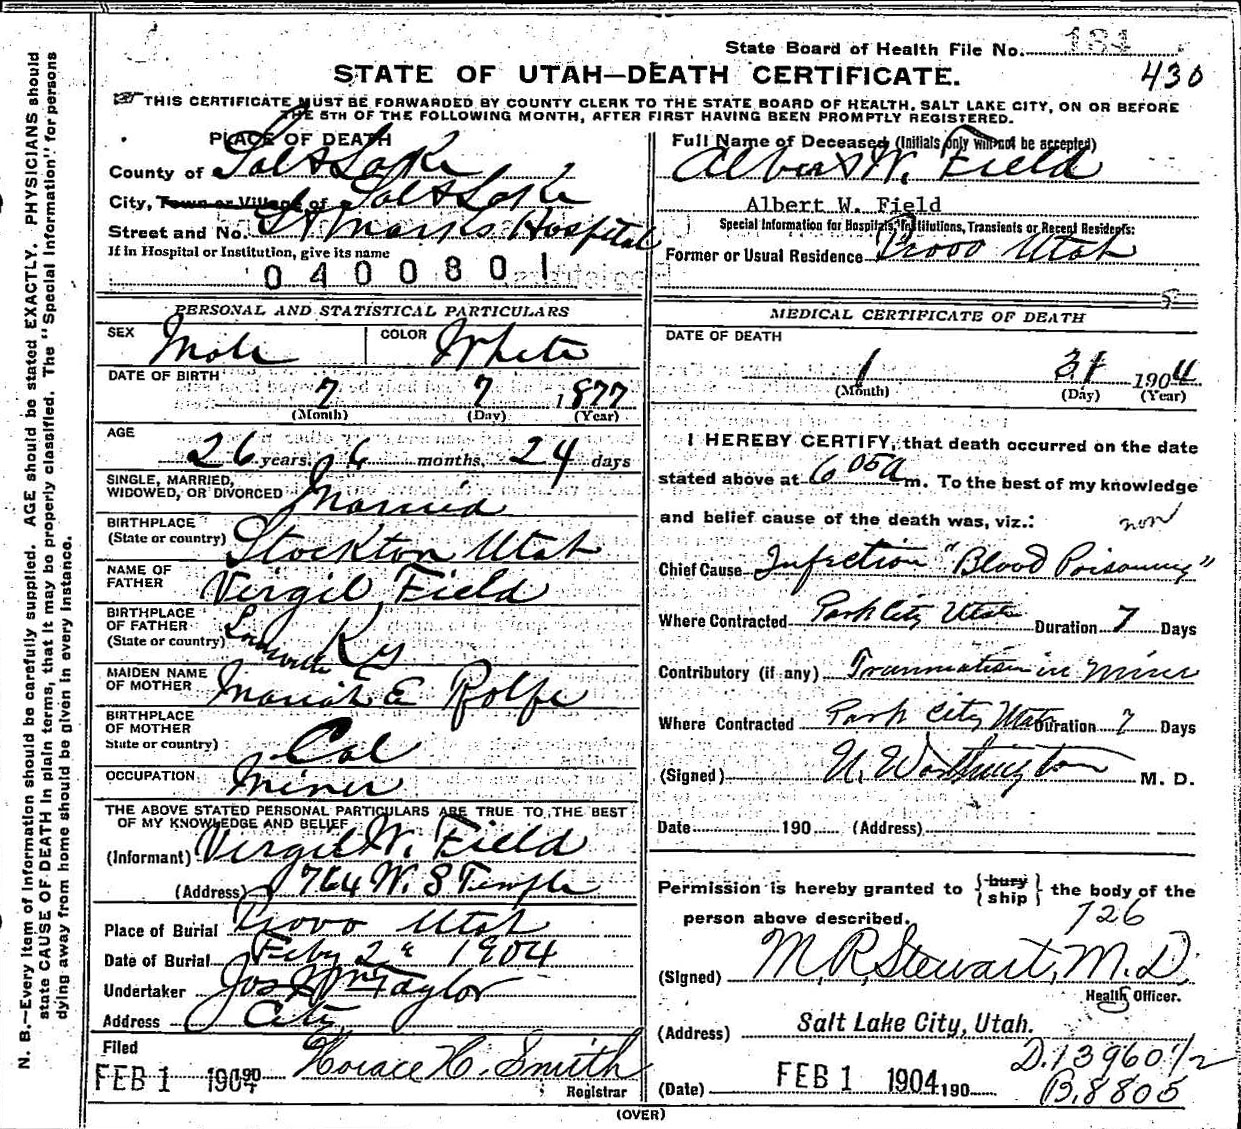 State Board of Health File No. 184
430
STATE OF UTAH—DEATH CERTIFICATE.
THIS CERTIFICATE MUST BE FORWARDED BY COUNTY CLERK TO THE STATE BOARD OF HEALTH, SALT LAKE CITY, ON OR BEFORE
THE 5TH OF THE FOLLOWING MONTH, AFTER FIRST HAVING BEEN PROMPTLY REGISTERED.
PLACE OF DEATH
County of Salt Lake
City, Town or Village of Salt Lake
Street and No. St Marks Hospital
If in Hospital or Institution, give its name
0400801
Full Name of Deceased (Initials only will not be accepted)
Albert W. Field
Albert W. Field
Special Information for Hospitals, Institutions, Transients or Recent Residents:
Former or Usual Residence Provo Utah
PERSONAL AND STATISTICAL PARTICULARS
SEX Male COLOR White
DATE OF BIRTH
7 7 1877
(Month) (Day) (Year)
AGE
26 years, 6 months, 24 days
SINGLE, MARRIED,
WIDOWED, OR DIVORCED Married
BIRTHPLACE
(State or country) Stockton Utah
NAME OF
FATHER Virgil Field
BIRTHPLACE
OF FATHER
(State or country) Louisville Ky
MAIDEN NAME
OF MOTHER Mariah E Rolfe
BIRTHPLACE
OF MOTHER
State or country) Cal
OCCUPATION Miner
THE ABOVE STATED PERSONAL PARTICULARS ARE TRUE TO THE BEST
OF MY KNOWLEDGE AND BELIEF
(Informant) Virgil W. Field
(Address) 764 W. S Temple
Place of Burial Provo Utah
Date of Burial Feby 2d 1904
Undertaker Jos Wm Taylor
Address City
Filed
FEB 1 1904 Horace H. Smith
Registrar
MEDICAL CERTIFICATE OF DEATH
DATE OF DEATH
1 31 1904
(Month) (Day) (Year)
I HEREBY CERTIFY, that death occurred on the date
stated above at 6 05 a m. To the best of my knowledge
and belief cause of the death was, viz.:
Chief Cause Infection "Blood Poisoning"
Where Contracted Park City Utah Duration 7 Days
Contributory (if any) Traumatism in Miner
Where Contracted Park City Utah Duration 7 Days
(Signed) U. Worthington M. D.
Date 190 (Address)
Permission is hereby granted to {bury ship} the body of the
person above described. 726
(Signed) M. R. Stewart, M. D.
Health Officer.
(Address) Salt Lake City, Utah.
D. 13960 1/2
(Date) FEB 1 1904 190 B. 8805
(OVER)
N. B.—Every item of information should be carefully supplied. AGE should be stated EXACTLY. PHYSICIANS should
state CAUSE OF DEATH in plain terms, that it may be properly classified. The "Special Information" for persons
dying away from home should be given in every instance.